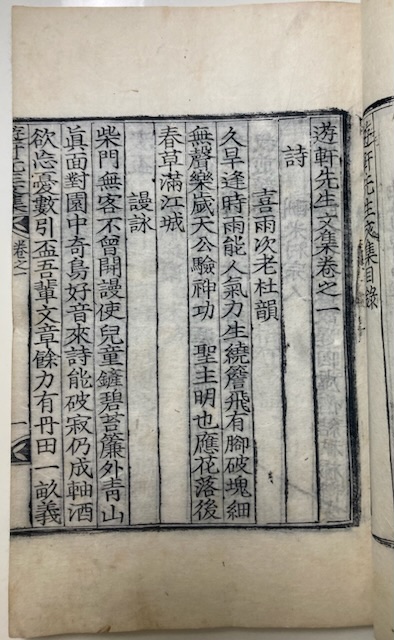 遊軒先生文集目錄
遊軒先生文集卷之一
詩
喜雨次老杜韻
久旱逢時雨能人氣力生繞簷飛有脚破塊細
無聲樂歲天公驗神功 聖主明也應花落後
春草滿江城
謾詠
柴門無客不曾開謾使兒童鏟碧苔簾外靑山
眞面對園中奇鳥好音來詩能破寂仍成軸酒
欲忘憂數引盃吾輩文章餘力有丹田一畝義
遊軒先生集 卷之一 一